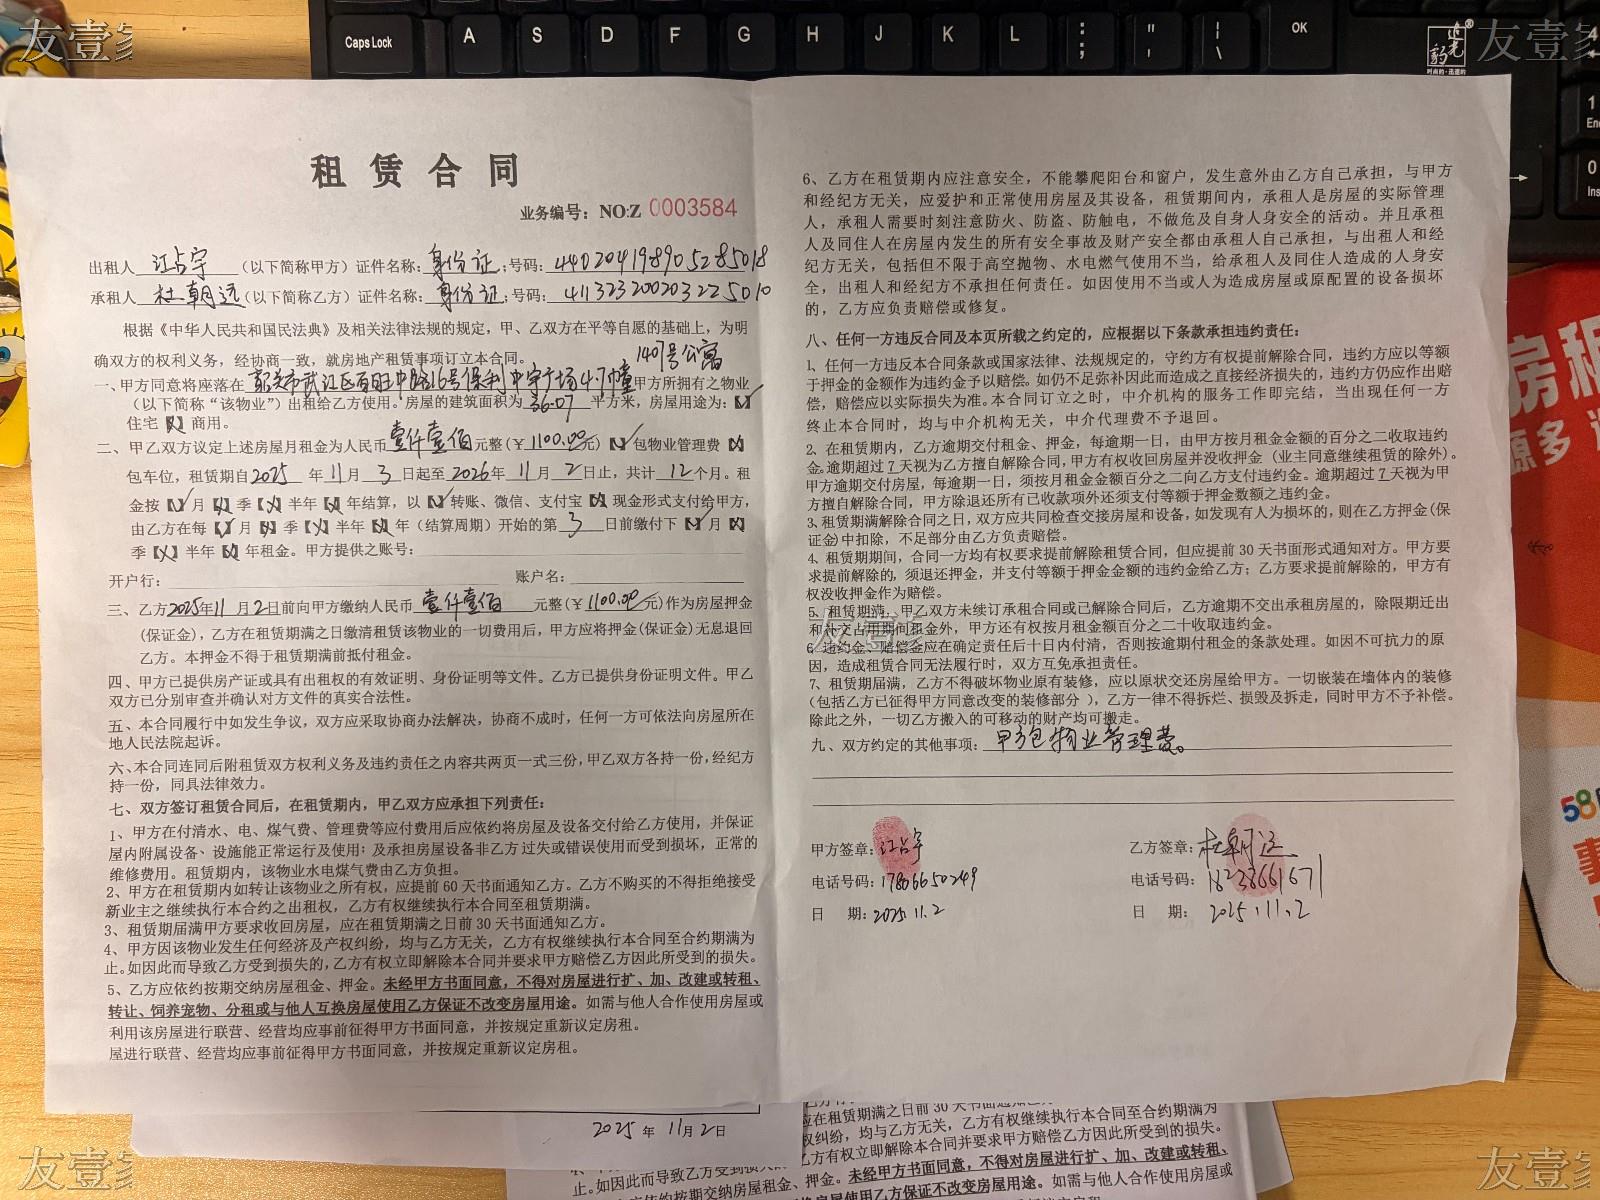 友壹家
友壹家
Caps Lock
A
S
D
F
G
H
J
K
L
OK
租赁合同
业务编号：NO:Z 0003584
出租人 江占宇 （以下简称甲方）证件名称：身份证；号码：440204198905285018
承租人 杜朝远 （以下简称乙方）证件名称：身份证；号码：411323200203225010
根据《中华人民共和国民法典》及相关法律法规的规定，甲、乙双方在平等自愿的基础上，为明
确双方的权利义务，经协商一致，就房地产租赁事项订立本合同。
1407号公寓
一、甲方同意将座落在 韶关市武江区百旺中路16号保利中宇广场4.7幢 甲方所拥有之物业
（以下简称“该物业”）出租给乙方使用。房屋的建筑面积为 36.07 平方米，房屋用途为：【√】
住宅【X】商用。
二、甲乙双方议定上述房屋月租金为人民币 壹仟壹佰 元整（￥1100.00元）【√】包物业管理费【X】
包车位，租赁期自 2025 年 11 月 3 日起至 2026 年 11 月 2 日止，共计 12 个月。租
金按【√】月【X】季【X】半年【X】年结算，以【√】转账、微信、支付宝【X】现金形式支付给甲方，
由乙方在每【√】月【X】季【X】半年【X】年（结算周期）开始的第 3 日前缴付下【√】月【X】
季【X】半年【X】年租金。甲方提供之账号：
开户行： 账户名：
三、乙方 2025年11月2日前向甲方缴纳人民币 壹仟壹佰 元整（￥1100.00元）作为房屋押金
（保证金），乙方在租赁期满之日缴清租赁该物业的一切费用后，甲方应将押金（保证金）无息退回
乙方。本押金不得于租赁期满前抵付租金。
四、甲方已提供房产证或具有出租权的有效证明、身份证明等文件。乙方已提供身份证明文件。甲乙
双方已分别审查并确认对方文件的真实合法性。
五、本合同履行中如发生争议，双方应采取协商办法解决，协商不成时，任何一方可依法向房屋所在
地人民法院起诉。
六、本合同连同后附租赁双方权利义务及违约责任之内容共两页一式三份，甲乙双方各持一份，经纪方
持一份，同具法律效力。
七、双方签订租赁合同后，在租赁期内，甲乙双方应承担下列责任：
1、甲方在付清水、电、煤气费、管理费等应付费用后应依约将房屋及设备交付给乙方使用，并保证
屋内附属设备、设施能正常运行及使用；及承担房屋设备非乙方过失或错误使用而受到损坏，正常的
维修费用。租赁期内，该物业水电煤气费由乙方负担。
2、甲方在租赁期内如转让该物业之所有权，应提前60天书面通知乙方。乙方不购买的不得拒绝接受
新业主之继续执行本合约之出租权，乙方有权继续执行本合同至租赁期满。
3、租赁期届满甲方要求收回房屋，应在租赁期满之日前30天书面通知乙方。
4、甲方因该物业发生任何经济及产权纠纷，均与乙方无关，乙方有权继续执行本合同至合约期满为
止。如因此而导致乙方受到损失的，乙方有权立即解除本合同并要求甲方赔偿乙方因此所受到的损失。
5、乙方应依约按期交纳房屋租金、押金。未经甲方书面同意，不得对房屋进行扩、加、改建或转租、
转让、饲养宠物、分租或与他人互换房屋使用乙方保证不改变房屋用途。如需与他人合作使用房屋或
利用该房屋进行联营、经营均应事前征得甲方书面同意，并按规定重新议定房租。
屋进行联营、经营均应事前征得甲方书面同意，并按规定重新议定房租。
6、乙方在租赁期内应注意安全，不能攀爬阳台和窗户，发生意外由乙方自己承担，与甲方
和经纪方无关，应爱护和正常使用房屋及其设备，租赁期间内，承租人是房屋的实际管理
人，承租人需要时刻注意防火、防盗、防触电，不做危及自身人身安全的活动。并且承租
人及同住人在房屋内发生的所有安全事故及财产安全都由承租人自己承担，与出租人和经
纪方无关，包括但不限于高空抛物、水电燃气使用不当，给承租人及同住人造成的人身安
全，出租人和经纪方不承担任何责任。如因使用不当或人为造成房屋或原配置的设备损坏
的，乙方应负责赔偿或修复。
八、任何一方违反合同及本页所载之约定的，应根据以下条款承担违约责任：
1、任何一方违反本合同条款或国家法律、法规规定的，守约方有权提前解除合同，违约方应以等额
于押金的金额作为违约金予以赔偿。如仍不足弥补因此而造成之直接经济损失的，违约方仍应作出赔
偿，赔偿应以实际损失为准。本合同订立之时，中介机构的服务工作即完结，当出现任何一方
终止本合同时，均与中介机构无关，中介代理费不予退回。
2、在租赁期内，乙方逾期交付租金、押金，每逾期一日，由甲方按月租金金额的百分之二收取违约
金。逾期超过7天视为乙方擅自解除合同，甲方有权收回房屋并没收押金（业主同意继续租赁的除外）。
甲方逾期交付房屋，每逾期一日，须按月租金金额百分之二向乙方支付违约金。逾期超过7天视为甲
方擅自解除合同，甲方除退还所有已收款项外还须支付等额于押金数额之违约金。
3、租赁期满解除合同之日，双方应共同检查交接房屋和设备，如发现有人为损坏的，则在乙方押金（保
证金）中扣除，不足部分由乙方负责赔偿。
4、租赁期期间，合同一方均有权要求提前解除租赁合同，但应提前30天书面形式通知对方。甲方要
求提前解除的，须退还押金，并支付等额于押金金额的违约金给乙方；乙方要求提前解除的，甲方有
权没收押金作为赔偿。
5、租赁期满，甲乙双方未续订承租合同或已解除合同后，乙方逾期不交出承租房屋的，除限期迁出
和补交占用期间租金外，甲方还有权按月租金额百分之二十收取违约金。
友壹家
6、违约金、赔偿金应在确定责任后十日内付清，否则按逾期付租金的条款处理。如因不可抗力的原
因，造成租赁合同无法履行时，双方互免承担责任。
7、租赁期届满，乙方不得破坏物业原有装修，应以原状交还房屋给甲方。一切嵌装在墙体内的装修
（包括乙方已征得甲方同意改变的装修部分），乙方一律不得拆烂、损毁及拆走，同时甲方不予补偿。
除此之外，一切乙方搬入的可移动的财产均可搬走。
九、双方约定的其他事项：甲方包物业管理费。
甲方签章：江占宇
电话号码：17806650249
日 期：2025.11.2
乙方签章：杜朝远
电话号码：18238661671
日 期：2025.11.2
2025 年 11月2日
应在租赁期满之日前30天书面通知乙
权纠纷，均与乙方无关，乙方有权继续执行本合同至合约期满为
乙方有权立即解除本合同并要求甲方赔偿乙方因此所受到的损失。
止。如因此而导致乙方受到损
金、押金。未经甲方书面同意，不得对房屋进行扩、加、改建或转租、
换房屋使用乙方保证不改变房屋用途。如需与他人合作使用房屋或
房租
源多
58
友壹家
友壹家